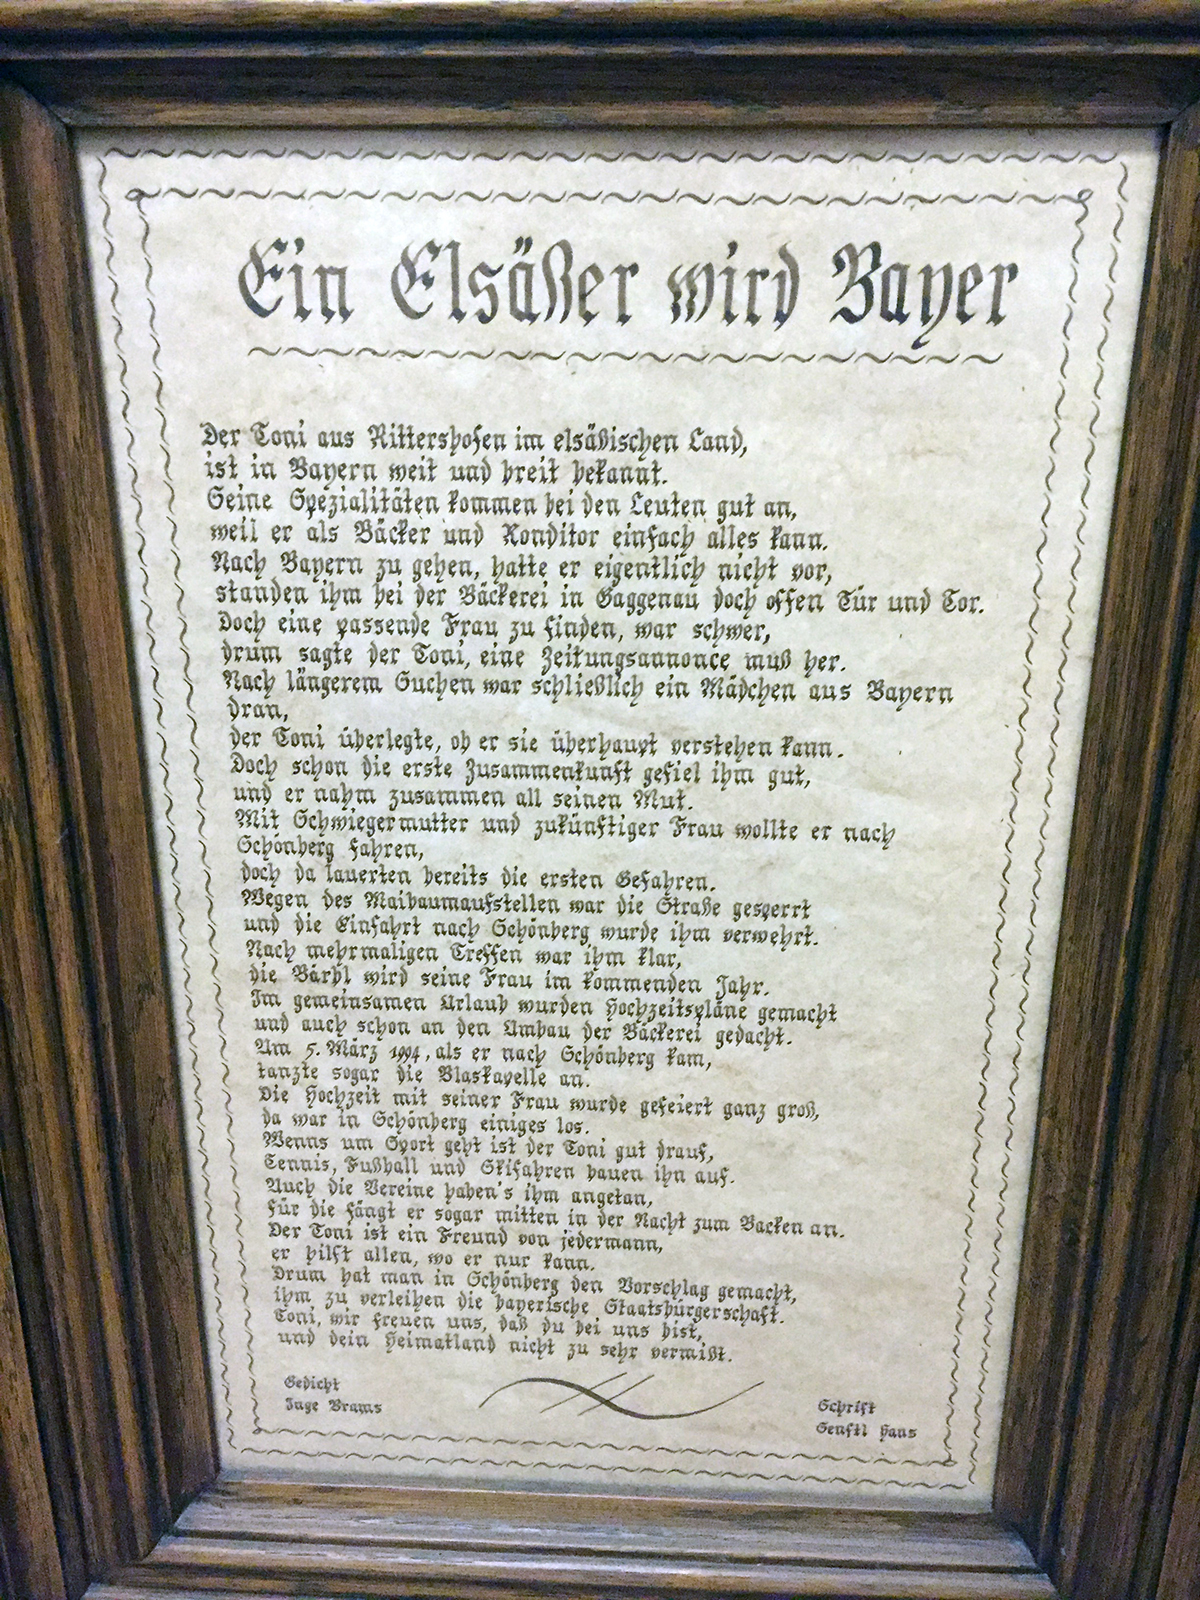 Ein Elsäßer wird Bayer
Der Toni aus Rittershofen im elsäßischen Land,
ist in Bayern weit und breit bekannt.
Seine Spezialitäten kommen bei den Leuten gut an,
weil er als Bäcker und Konditor einfach alles kann.
Nach Bayern zu gehen, hatte er eigentlich nicht vor,
standen ihm bei der Bäckerei in Gaggenau doch offen Tür und Tor.
Doch eine passende Frau zu finden, war schwer,
drum sagte der Toni, eine Zeitungsannonce muß her.
Nach längerem Suchen war schließlich ein Mädchen aus Bayern
dran,
der Toni überlegte, ob er sie überhaupt verstehen kann.
Doch schon die erste Zusammenkunft gefiel ihm gut,
und er nahm zusammen all seinen Mut.
Mit Schwiegermutter und zukünftiger Frau wollte er nach
Schönberg fahren,
doch da lauerten bereits die ersten Gefahren.
Wegen des Maibaumaufstellen war die Straße gesperrt
und die Einfahrt nach Schönberg wurde ihm verwehrt.
Nach mehrmaligen Treffen war ihm klar,
die Bärbl wird seine Frau im kommenden Jahr.
Im gemeinsamen Urlaub wurden Hochzeitspläne gemacht
und auch schon an den Umbau der Bäckerei gedacht.
Am 5. März 1994, als er nach Schönberg kam,
tanzte sogar die Blaskapelle an.
Die Hochzeit mit seiner Frau wurde gefeiert ganz groß,
da war in Schönberg einiges los.
Wenns um Sport geht ist der Toni gut drauf,
Tennis, Fußball und Skifahren bauen ihn auf.
Auch die Vereine haben's ihm angetan,
für die fängt er sogar mitten in der Nacht zum Backen an.
Der Toni ist ein Freund von jedermann,
er hilft allen, wo er nur kann.
Drum hat man in Schönberg den Vorschlag gemacht,
ihm zu verleihen die bayerische Staatsbürgerschaft.
Toni, wir freuen uns, daß du bei uns bist,
und dein Heimatland nicht zu sehr vermißt.
Gedicht
Inge Brams
Schrift
Senftl Hans